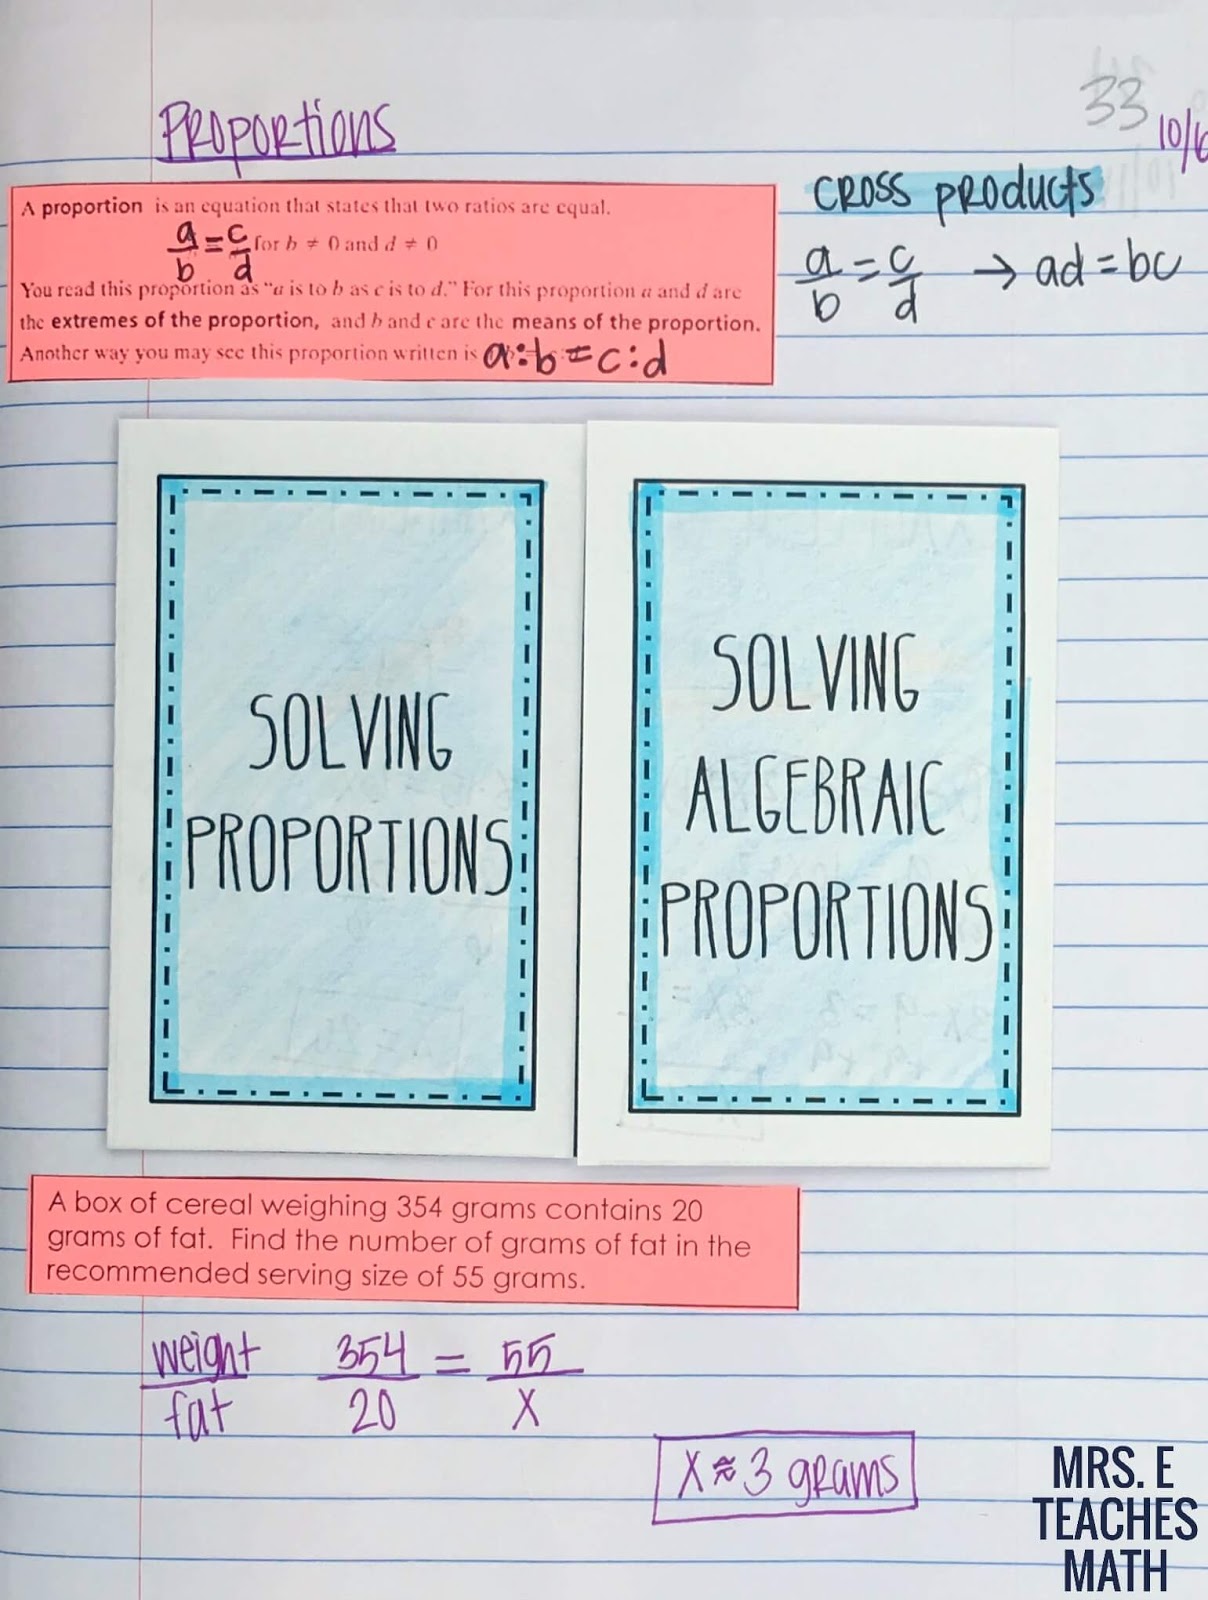 Proportions
33
10/6
A proportion is an equation that states that two ratios are equal.
a/b = c/d for b ≠ 0 and d ≠ 0
You read this proportion as "a is to b as c is to d." For this proportion a and d are
the extremes of the proportion, and b and c are the means of the proportion.
Another way you may see this proportion written is a:b = c:d
CROSS PRODUCTS
a/b = c/d → ad = bc
SOLVING
PROPORTIONS
SOLVING
ALGEBRAIC
PROPORTIONS
A box of cereal weighing 354 grams contains 20
grams of fat. Find the number of grams of fat in the
recommended serving size of 55 grams.
weight/fat 354/20 = 55/X
X ≈ 3 grams
MRS. E
TEACHES
MATH